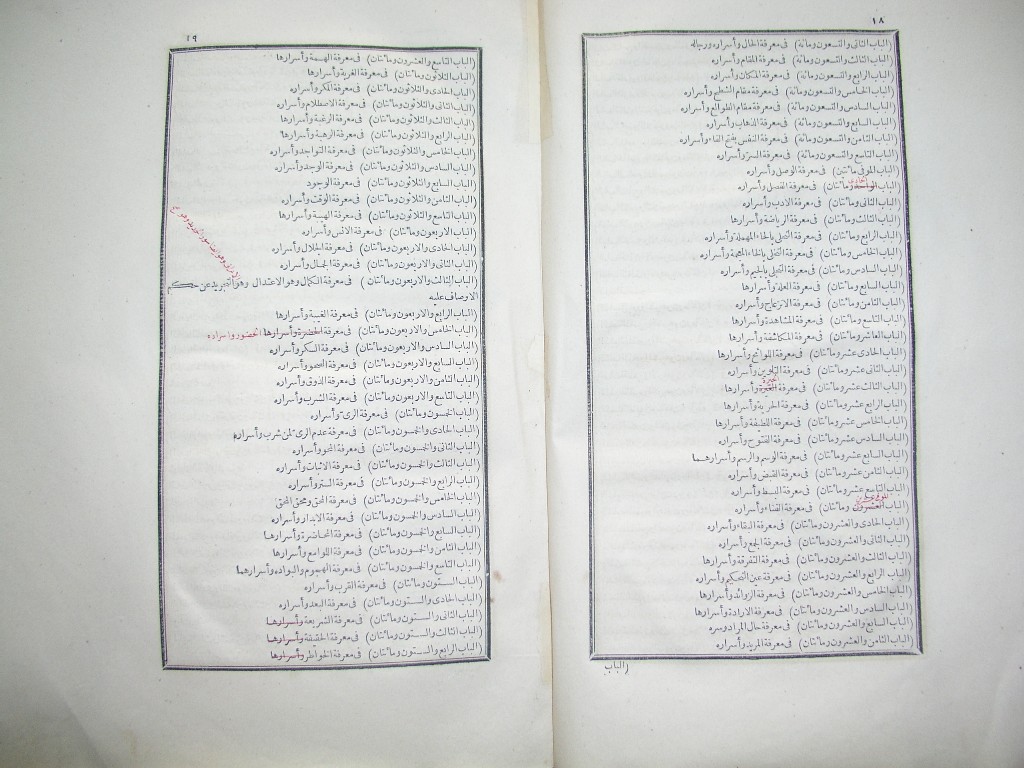 ١٨
(الباب الثانى والتسعون ومائة) فى معرفة الحال وأسراره ورجاله
(الباب الثالث والتسعون ومائة) فى معرفة المقام وأسراره
(الباب الرابع والتسعون ومائة) فى معرفة المكان وأسراره
(الباب الخامس والتسعون ومائة) فى معرفة مقام الشطح وأسراره
(الباب السادس والتسعون ومائة) فى معرفة مقام الطوالع وأسراره
(الباب السابع والتسعون ومائة) فى معرفة الذهاب وأسراره
(الباب الثامن والتسعون ومائة) فى معرفة النفس بفتح الفاء وأسراره
(الباب التاسع والتسعون ومائة) فى معرفة السر وأسراره
(الباب الموفى مائتين) فى معرفة الوصل وأسراره
(الباب الواحد ومائتان) فى معرفة الفصل وأسراره
(الباب الثانى ومائتان) فى معرفة الادب وأسراره
(الباب الثالث ومائتان) فى معرفة الرياضة وأسرارها
(الباب الرابع ومائتان) فى معرفة التحلى بالحاء المهملة وأسراره
(الباب الخامس ومائتان) فى معرفة التخلى بالخاء المعجمة وأسراره
(الباب السادس ومائتان) فى معرفة التجلى بالجيم وأسراره
(الباب السابع ومائتان) فى معرفة العلة وأسرارها
(الباب الثامن ومائتان) فى معرفة الانزعاج وأسراره
(الباب التاسع ومائتان) فى معرفة المشاهدة وأسرارها
(الباب العاشر ومائتان) فى معرفة المكاشفة وأسرارها
(الباب الحادى عشر ومائتان) فى معرفة اللوائح وأسرارها
(الباب الثانى عشر ومائتان) فى معرفة التلوين وأسراره
(الباب الثالث عشر ومائتان) فى معرفة الغيرة وأسرارها
(الباب الرابع عشر ومائتان) فى معرفة الحرية وأسرارها
(الباب الخامس عشر ومائتان) فى معرفة اللطيفة وأسرارها
(الباب السادس عشر ومائتان) فى معرفة الفتوح وأسراره
(الباب السابع عشر ومائتان) فى معرفة الوسم والرسم وأسرارهما
(الباب الثامن عشر ومائتان) فى معرفة القبض وأسراره
(الباب التاسع عشر ومائتان) فى معرفة البسط وأسراره
(الباب العشرون ومائتان) فى معرفة الفناء وأسراره
(الباب الحادى والعشرون ومائتان) فى معرفة البقاء وأسراره
(الباب الثانى والعشرون ومائتان) فى معرفة الجمع وأسراره
(الباب الثالث والعشرون ومائتان) فى معرفة التفرقة وأسرارها
(الباب الرابع والعشرون ومائتان) فى معرفة عين التحكيم وأسراره
(الباب الخامس والعشرون ومائتان) فى معرفة الزوائد وأسرارها
(الباب السادس والعشرون ومائتان) فى معرفة الارادة وأسرارها
(الباب السابع والعشرون ومائتان) فى معرفة حال المراد وسره
(الباب الثامن والعشرون ومائتان) فى معرفة المريد وأسراره
(الباب
١٩
(الباب التاسع والعشرون ومائتان) فى معرفة الهمة وأسرارها
(الباب الثلاثون ومائتان) فى معرفة الغربة وأسرارها
(الباب الحادى والثلاثون ومائتان) فى معرفة المكر وأسراره
(الباب الثانى والثلاثون ومائتان) فى معرفة الاصطلام وأسراره
(الباب الثالث والثلاثون ومائتان) فى معرفة الرغبة وأسرارها
(الباب الرابع والثلاثون ومائتان) فى معرفة الرهبة وأسرارها
(الباب الخامس والثلاثون ومائتان) فى معرفة التواجد وأسراره
(الباب السادس والثلاثون ومائتان) فى معرفة الوجد وأسراره
(الباب السابع والثلاثون ومائتان) فى معرفة الوجود
(الباب الثامن والثلاثون ومائتان) فى معرفة الوقت وأسراره
(الباب التاسع والثلاثون ومائتان) فى معرفة الهيبة وأسرارها
(الباب الاربعون ومائتان) فى معرفة الانس وأسراره
(الباب الحادى والاربعون ومائتان) فى معرفة الجلال وأسراره
(الباب الثانى والاربعون ومائتان) فى معرفة الجمال وأسراره
(الباب الثالث والاربعون ومائتان) فى معرفة الكمال وهو الاعتدال وهو التجريد عن حكم
الاوصاف عليه
(الباب الرابع والاربعون ومائتان) فى معرفة الغيبة وأسرارها
(الباب الخامس والاربعون ومائتان) فى معرفة الحضرة وأسرارها الحضور واسراره
(الباب السادس والاربعون ومائتان) فى معرفة السكر وأسراره
(الباب السابع والاربعون ومائتان) فى معرفة الصحو وأسراره
(الباب الثامن والاربعون ومائتان) فى معرفة الذوق وأسراره
(الباب التاسع والاربعون ومائتان) فى معرفة الشرب وأسراره
(الباب الخمسون ومائتان) فى معرفة الرى وأسراره
(الباب الحادى والخمسون ومائتان) فى معرفة عدم الرى لمن شرب وأسراره
(الباب الثانى والخمسون ومائتان) فى معرفة المحو وأسراره
(الباب الثالث والخمسون ومائتان) فى معرفة الاثبات وأسراره
(الباب الرابع والخمسون ومائتان) فى معرفة الستر وأسراره
(الباب الخامس والخمسون ومائتان) فى معرفة المحق ومحق المحق
(الباب السادس والخمسون ومائتان) فى معرفة الابدار وأسراره
(الباب السابع والخمسون ومائتان) فى معرفة المحاضرة وأسرارها
(الباب الثامن والخمسون ومائتان) فى معرفة اللوامع وأسرارها
(الباب التاسع والخمسون ومائتان) فى معرفة الهجوم والبواده وأسرارهما
(الباب الستون ومائتان) فى معرفة القرب وأسراره
(الباب الحادى والستون ومائتان) فى معرفة البعد وأسراره
(الباب الثانى والستون ومائتان) فى معرفة الشريعة وأسرارها
(الباب الثالث والستون ومائتان) فى معرفة الحقيقة وأسرارها
(الباب الرابع والستون ومائتان) فى معرفة الخواطر وأسرارها